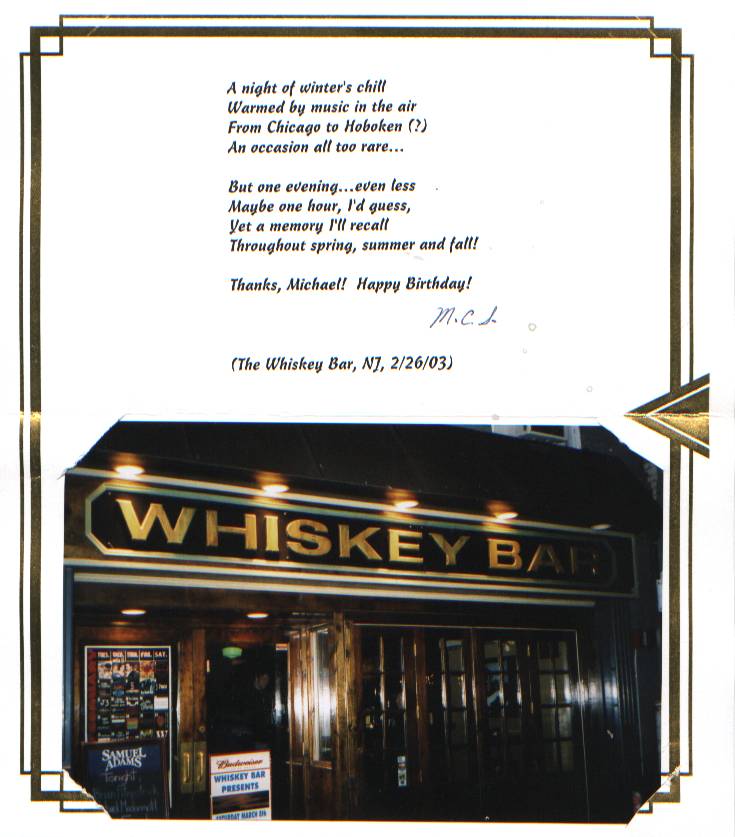 A night of winter's chill
Warmed by music in the air
From Chicago to Hoboken (?)
An occasion all too rare...
But one evening...even less
Maybe one hour, I'd guess,
Yet a memory I'll recall
Throughout spring, summer and fall!
Thanks, Michael! Happy Birthday!
M.C.S.
(The Whiskey Bar, NJ, 2/26/03)
WHISKEY BAR
TUES. WED. THUR. FRI. SAT.
SAMUEL
ADAMS
Tonight
Budweiser
WHISKEY BAR
PRESENTS
SATURDAY MARCH 8th